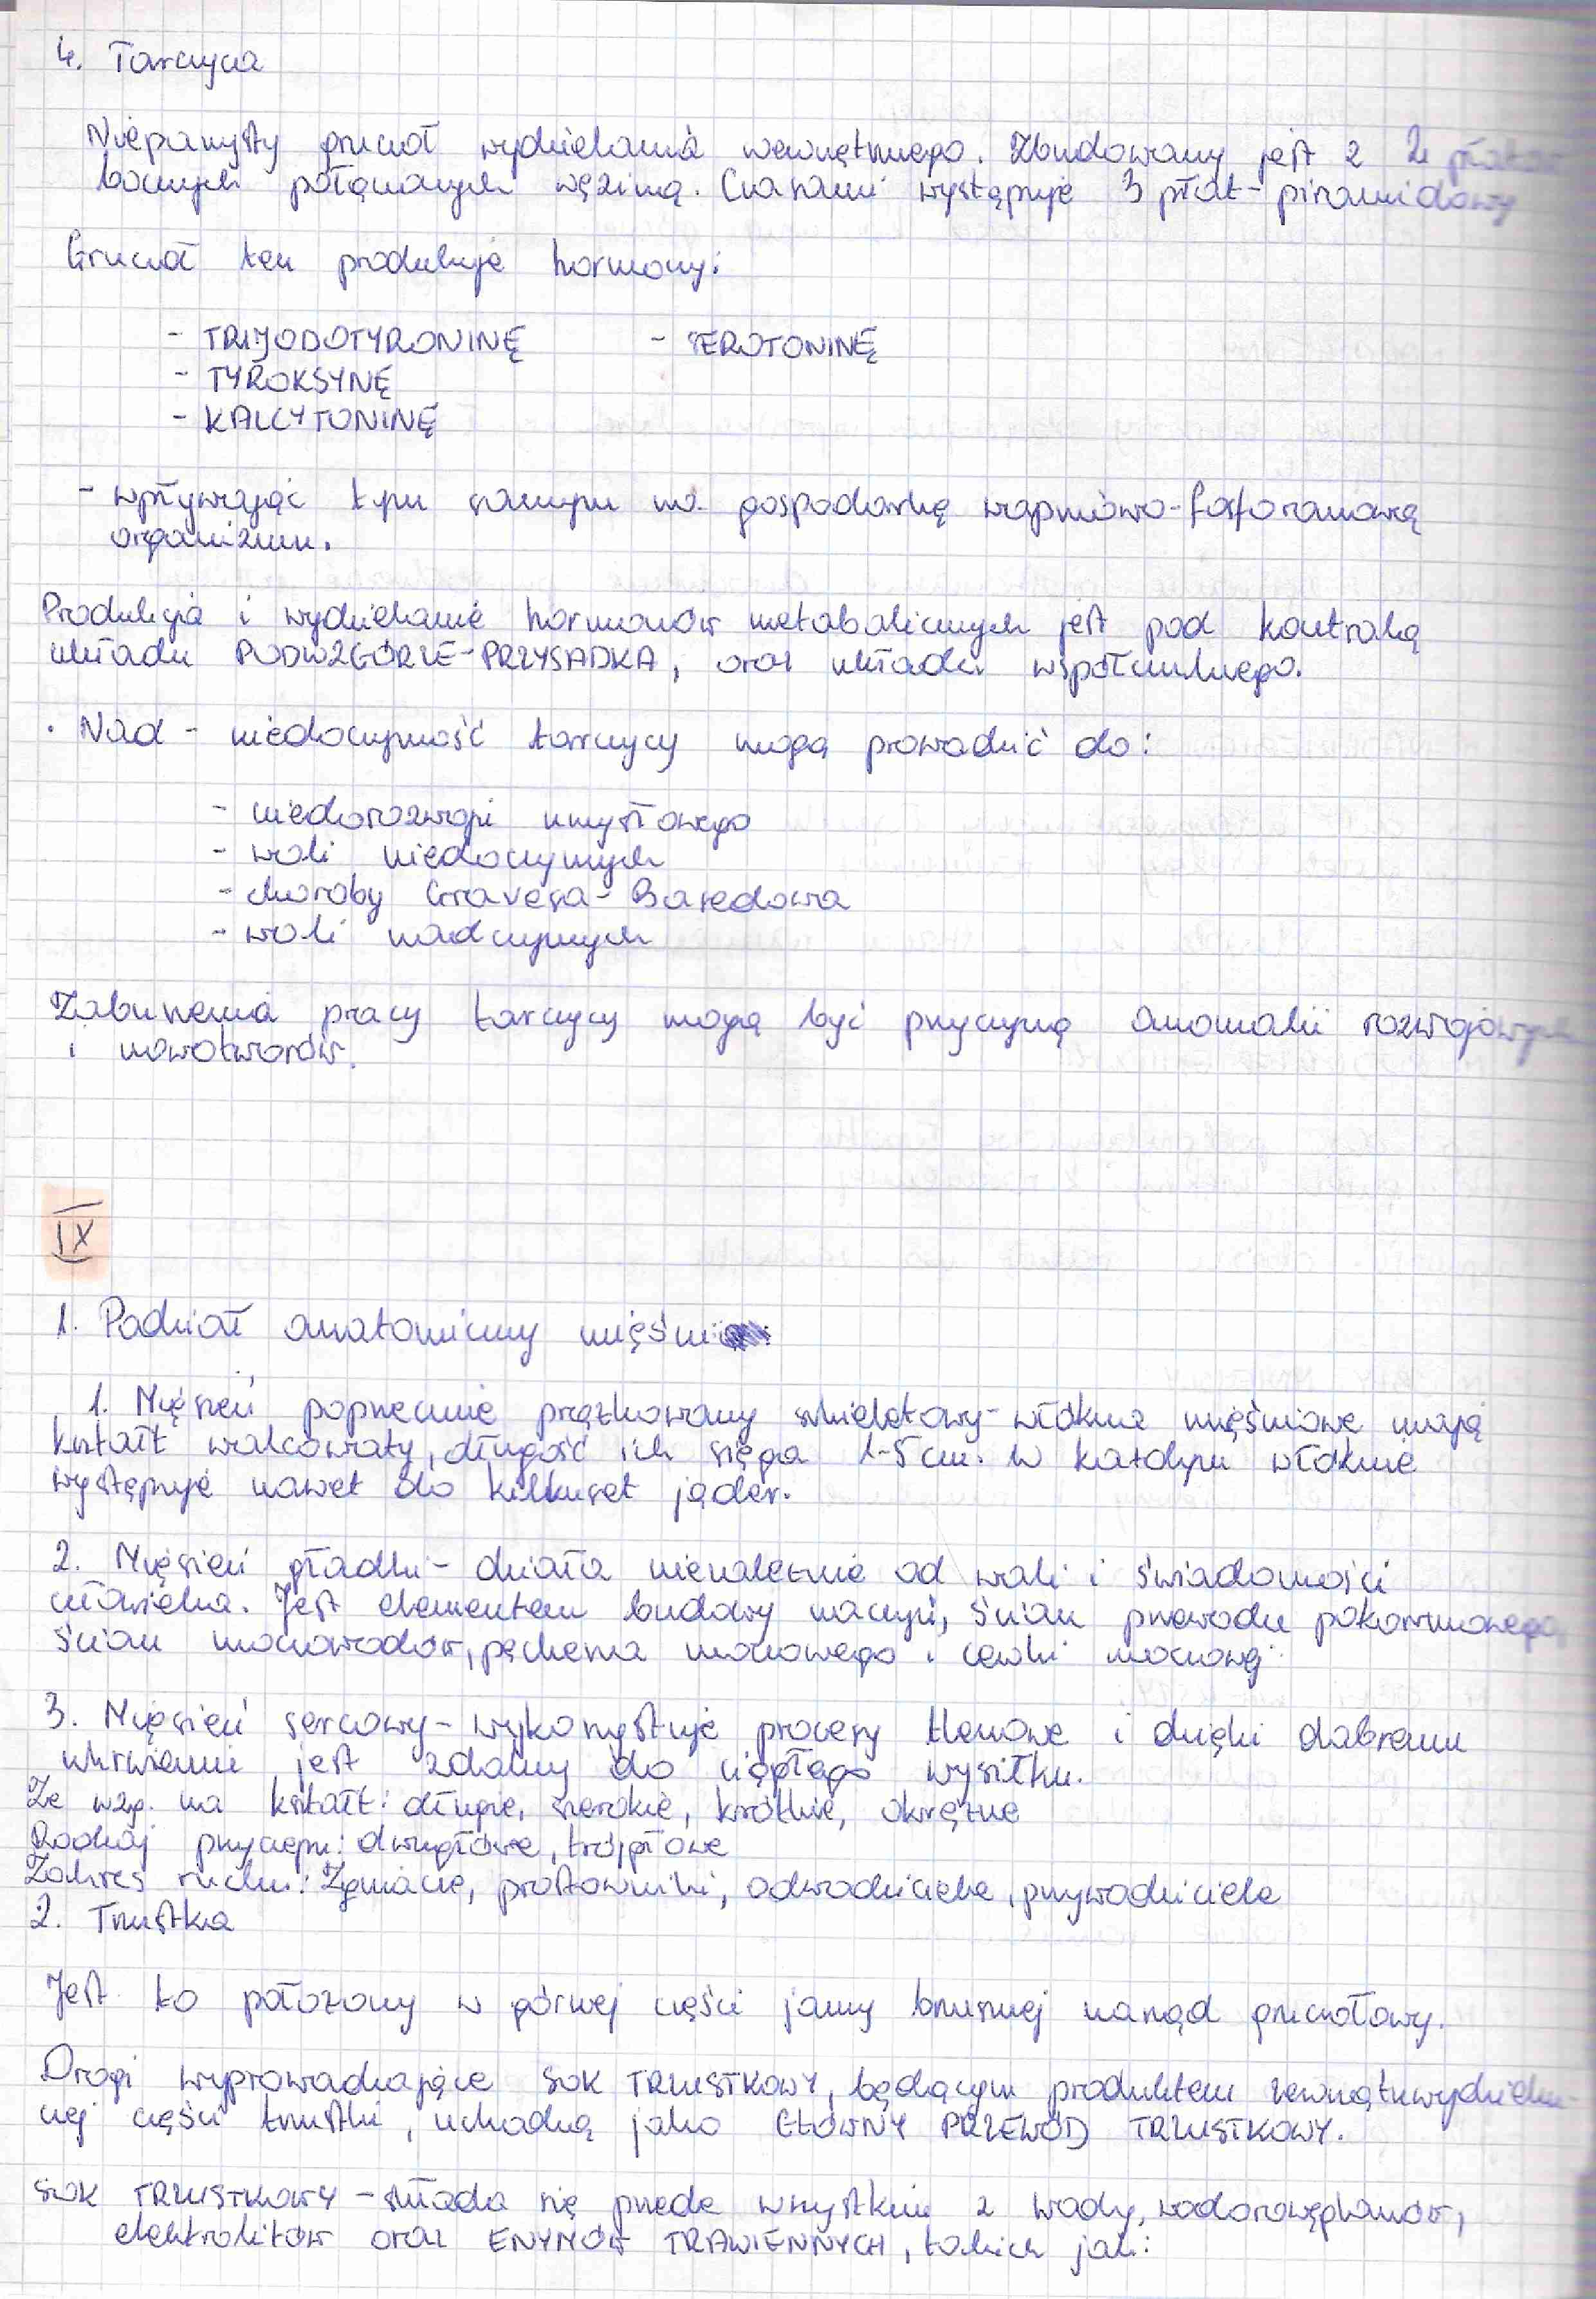 4. Tarczyca
Nieparzysty gruczoł wydzielania wewnętrznego. Zbudowany jest z 2 płatów
bocznych połączonych węziną. Czasami występuje 3 płat - piramidowy
Gruczoł ten produkuje hormony:
- TRIJODOTYRONINĘ - SEROTONINĘ
- TYROKSYNĘ
- KALCYTONINĘ
- wpływając tym samym na gospodarkę wapniowo-fosforanową
organizmu.
Produkcja i wydzielanie hormonów metabolicznych jest pod kontrolą
układu PODWZGÓRZE-PRZYSADKA, oraz układu współczulnego.
. Nad - niedoczynność tarczycy mogą prowadzić do:
- niedorozwoju umysłowego
- woli niedoczynnych
- choroby Gravesa - Basedowa
- woli nadczynnych
Zaburzenia pracy tarczycy mogą być przyczyną anomalii rozwojowych
i nowotworów.
IX
1. Podział anatomiczny mięśni
1. Mięsień poprzecznie prążkowany szkieletowy - włókna mięśniowe mają
kształt walcowaty, długość ich sięga 1-5 cm. W każdym włóknie
występuje nawet do kilkuset jąder.
2. Mięsień gładki - działa niezależnie od woli i świadomości
człowieka. Jest elementem budowy naczyń, ścian przewodu pokarmowego,
ścian moczowodów, pęcherza moczowego i cewki moczowej.
3. Mięsień sercowy - wykorzystuje procesy tlenowe i dzięki dobremu
ukrwieniu jest zdolny do ciągłego wysiłku.
Ze wzg. na kształt: długie, szerokie, krótkie, okrężne
Rodzaj przyczepu: dwugłowe, trójgłowe
Zakres ruchu: Zginacze, prostowniki, odwodziciele, przywodziciele
2. Trzustka
Jest to położony w górnej części jamy brzusznej narząd gruczołowy.
Drogi wyprowadzające SOK TRZUSTKOWY, będącym produktem zewnątrzwydzielni-
czej części trzustki, uchodzą jako GŁÓWNY PRZEWÓD TRZUSTKOWY.
SOK TRZUSTKOWY - składa się przede wszystkim z wody, wodorowęglanów,
elektrolitów oraz ENYMÓW TRAWIENNYCH, takich jak: